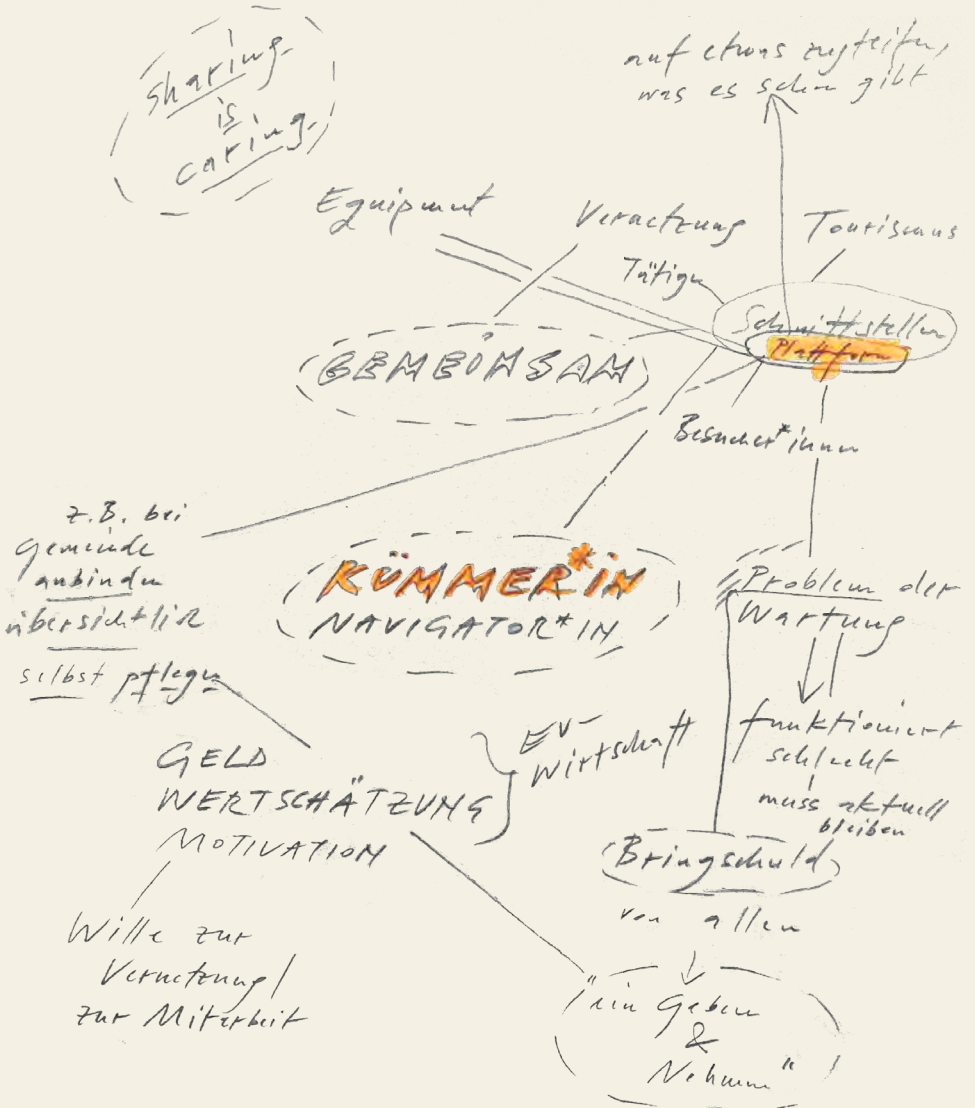 sharing
is
caring
auf etwas zugreifen,
was es schon gibt
Equipment
Vernetzung
Tourismus
Tätige
Schnittstellen
Plattform
GEMEINSAM
Besucher*innen
z.B. bei
Gemeinde
anbinden
übersichtlich
selbst pflegen
KÜMMER*IN
NAVIGATOR*IN
Problem der
Wartung
funktioniert
schlecht
muss aktuell
bleiben
GELD
WERTSCHÄTZUNG
MOTIVATION
EV-
Wirtschaft
Bringschuld
von allen
"ein Geben
&
Nehmen"
Wille zur
Vernetzung/
zur Mitarbeit